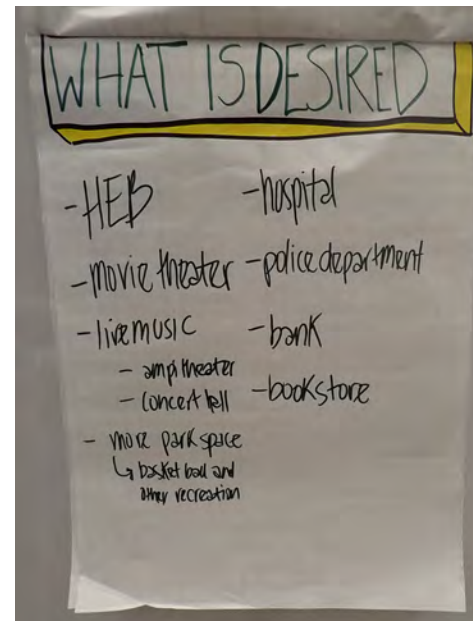 WHAT IS DESIRED
- HEB
- movie theater
- live music
- ampitheater
- concert hall
- more park space
↳ basket ball and
other recreation
- hospital
- police department
- bank
- bookstore